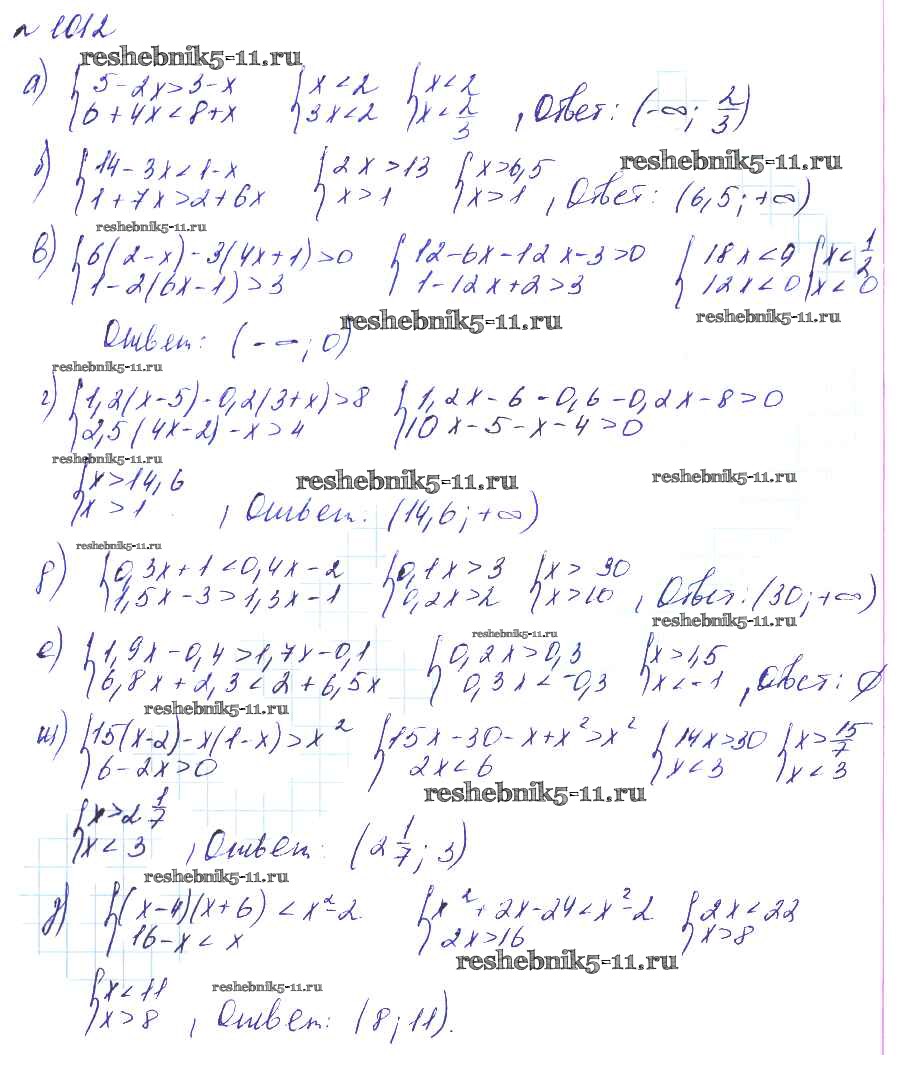 № 1012
reshebnik5-11.ru
а) { 5 - 2x > 3 - x ; 6 + 4x < 8 + x   { x < 2 ; 3x < 2   { x < 2 ; x < 2/3 , Ответ: (-∞; 2/3)
reshebnik5-11.ru
б) { 14 - 3x < 1 - x ; 1 + 7x > 2 + 6x   { 2x > 13 ; x > 1   { x > 6,5 ; x > 1 , Ответ: (6,5; +∞)
reshebnik5-11.ru
в) { 6(2 - x) - 3(4x + 1) > 0 ; 1 - 2(6x - 1) > 3   { 12 - 6x - 12x - 3 > 0 ; 1 - 12x + 2 > 3   { 18x < 9 ; 12x < 0   { x < 1/2 ; x < 0
reshebnik5-11.ru reshebnik5-11.ru
Ответ: (-∞; 0)
reshebnik5-11.ru
г) { 1,2(x - 5) - 0,2(3 + x) > 8 ; 2,5(4x - 2) - x > 4   { 1,2x - 6 - 0,6 - 0,2x - 8 > 0 ; 10x - 5 - x - 4 > 0
reshebnik5-11.ru reshebnik5-11.ru reshebnik5-11.ru
{ x > 14,6 ; x > 1 , Ответ: (14,6; +∞)
reshebnik5-11.ru
д) { 0,3x + 1 < 0,4x - 2 ; 1,5x - 3 > 1,3x - 1   { 0,1x > 3 ; 0,2x > 2   { x > 30 ; x > 10 , Ответ: (30; +∞)
reshebnik5-11.ru
reshebnik5-11.ru
е) { 1,9x - 0,4 > 1,7x - 0,1 ; 6,8x + 2,3 < 2 + 6,5x   { 0,2x > 0,3 ; 0,3x < -0,3   { x > 1,5 ; x < -1 , Ответ: ∅
reshebnik5-11.ru
ж) { 15(x - 2) - x(1 - x) > x² ; 6 - 2x > 0   { 15x - 30 - x + x² > x² ; 2x < 6   { 14x > 30 ; x < 3   { x > 15/7 ; x < 3
reshebnik5-11.ru
{ x > 2 1/7 ; x < 3 , Ответ: (2 1/7; 3)
reshebnik5-11.ru
з) { (x - 4)(x + 6) < x² - 2 ; 16 - x < x   { x² + 2x - 24 < x² - 2 ; 2x > 16   { 2x < 22 ; x > 8
reshebnik5-11.ru
reshebnik5-11.ru
{ x < 11 ; x > 8 , Ответ: (8; 11).